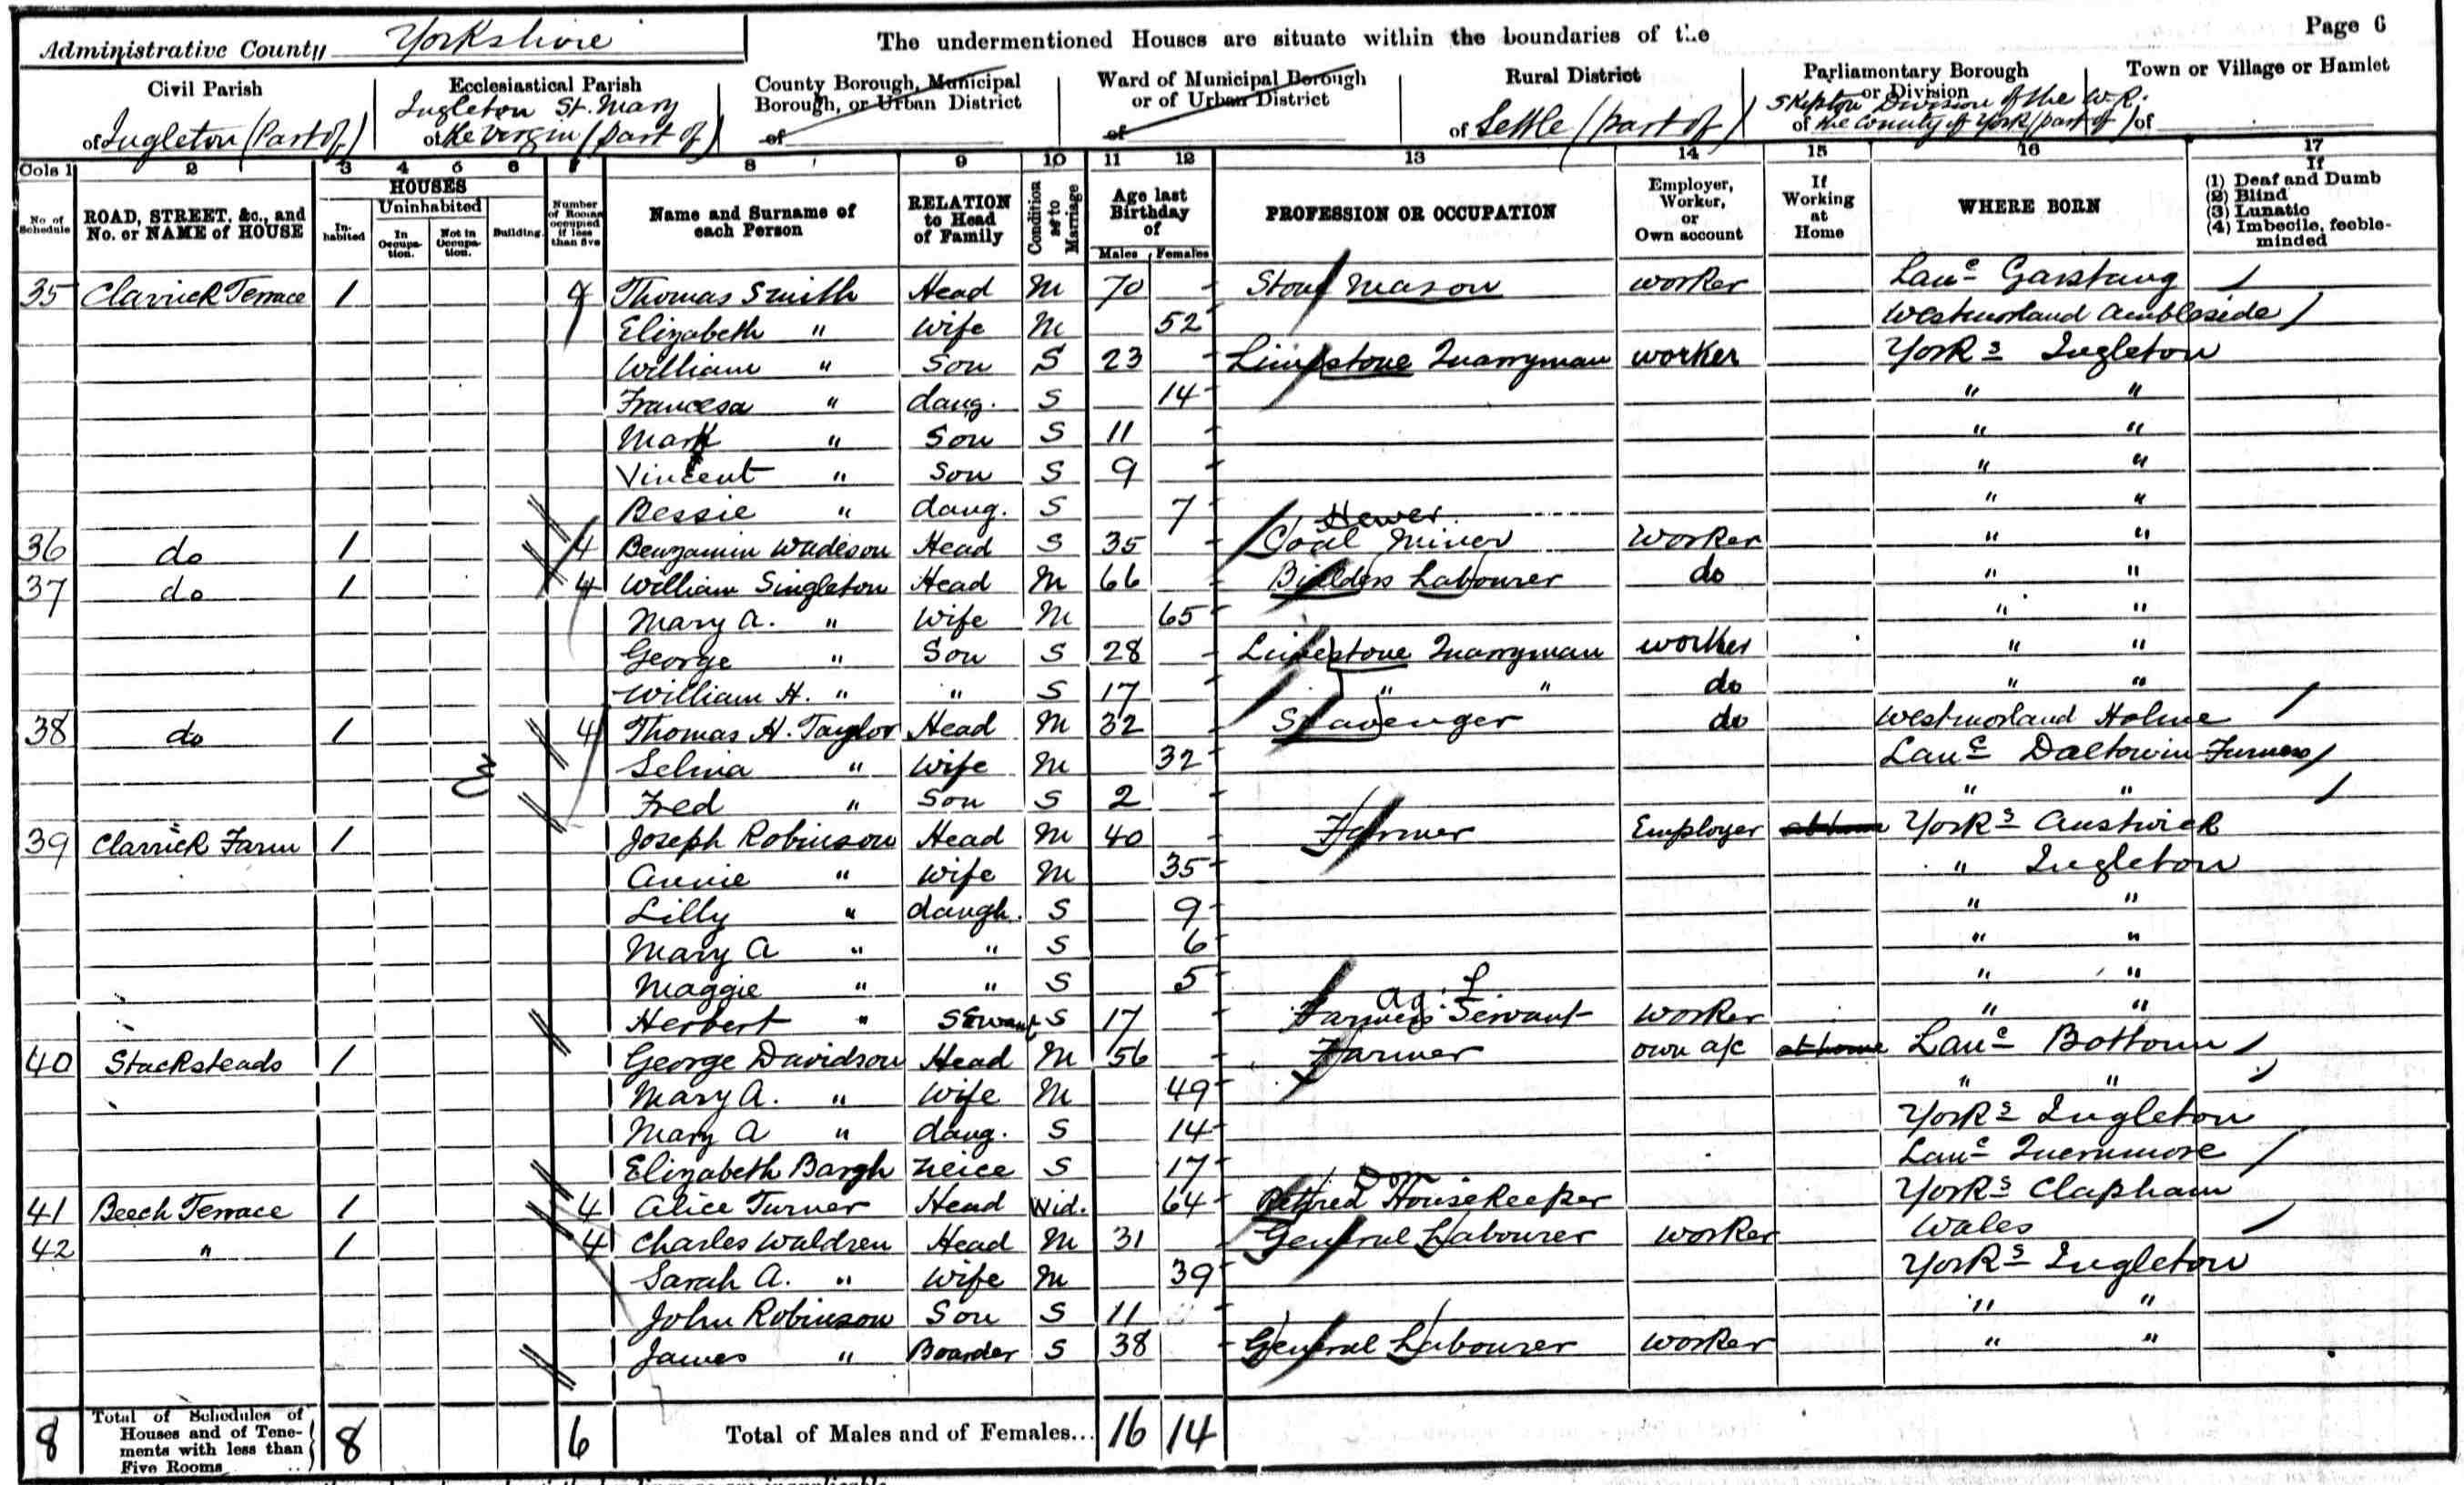 Administrative County Yorkshire The undermentioned Houses are situate within the boundaries of the Page 6
Civil Parish Ecclesiastical Parish County Borough, Municipal Borough, or Urban District Ward of Municipal Borough or of Urban District Rural District Parliamentary Borough or Division Town or Village or Hamlet
of Ingleton (Part of) Ingleton St. Mary of the Virgin (part of) of of of Settle (part of) Skipton Division of the W.R. of the County of York (part of) of
Cols 1 2 3 4 5 6 7 8 9 10 11 12 13 14 15 16 17
No. of Schedule ROAD, STREET, &c., and No. or NAME of HOUSE HOUSES Inhabited Uninhabited In Occupation. Not in Occupation. Building. Number of Rooms occupied if less than five Name and Surname of each Person RELATION to Head of Family Condition as to Marriage Age last Birthday of Males Females PROFESSION OR OCCUPATION Employer, Worker, or Own account If Working at Home WHERE BORN If (1) Deaf and Dumb (2) Blind (3) Lunatic (4) Imbecile, feeble-minded
35 Clarrick Terrace 1 4 Thomas Smith Head M 70 Stone Mason worker Lanc Garstang
Elizabeth " Wife M 52 Westmorland Ambleside
William " Son S 23 Limestone Quarryman worker Yorks Ingleton
Francesa " daug. S 14 " "
Mark " Son S 11 " "
Vincent " Son S 9 " "
Bessie " daug. S 7 " "
36 do 1 4 Benjamin Wadeson Head S 35 Coal Miner Hewer Worker " "
37 do 1 4 William Singleton Head M 66 Builders Labourer do " "
Mary A. " Wife M 65 " "
George " Son S 28 Limestone Quarryman worker " "
William H. " " S 17 " " do " "
38 do 1 4 Thomas H. Taylor Head M 32 Scavenger do Westmorland Holme
Selina " Wife M 32 Lanc Daltowin Furness
Fred " Son S 2 " "
39 Clarrick Farm 1 Joseph Robinson Head M 40 Farmer Employer at home Yorks Austwick
Annie " Wife M 35 " Ingleton
Lilly " daugh. S 9 " "
Mary A " " S 6 " "
Maggie " " S 5 " "
Herbert " Servant S 17 Farmers Servant Ag: L. Worker " "
40 Stacksteads 1 George Davidson Head M 56 Farmer own a/c at home Lanc Bottom
Mary A. " Wife M 49 " "
Mary A " daug. S 14 Yorks Ingleton
Elizabeth Bargh neice S 17 Lanc Quernmore
41 Beech Terrace 1 4 Alice Turner Head Wid. 64 Retired Housekeeper Dom Yorks Clapham
42 " 1 4 Charles Waldren Head M 31 General Labourer Worker Wales
Sarah A. " Wife M 39 Yorks Ingleton
John Robinson Son S 11 " "
James " Boarder S 38 General Labourer Worker " "
8 Total of Schedules of Houses and of Tenements with less than Five Rooms .. 8 6 Total of Males and of Females... 16 14